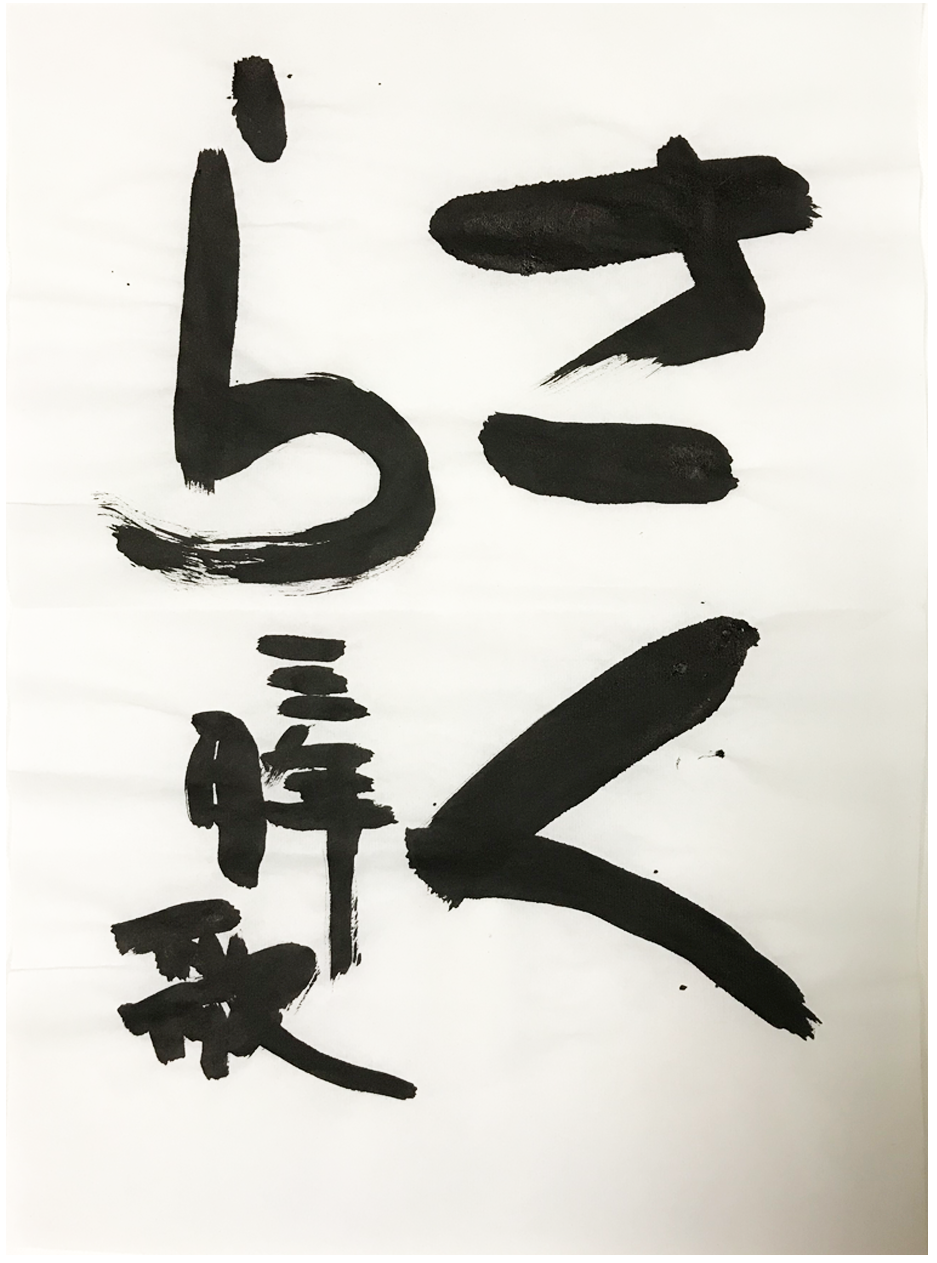 さく
ら
三年
歌